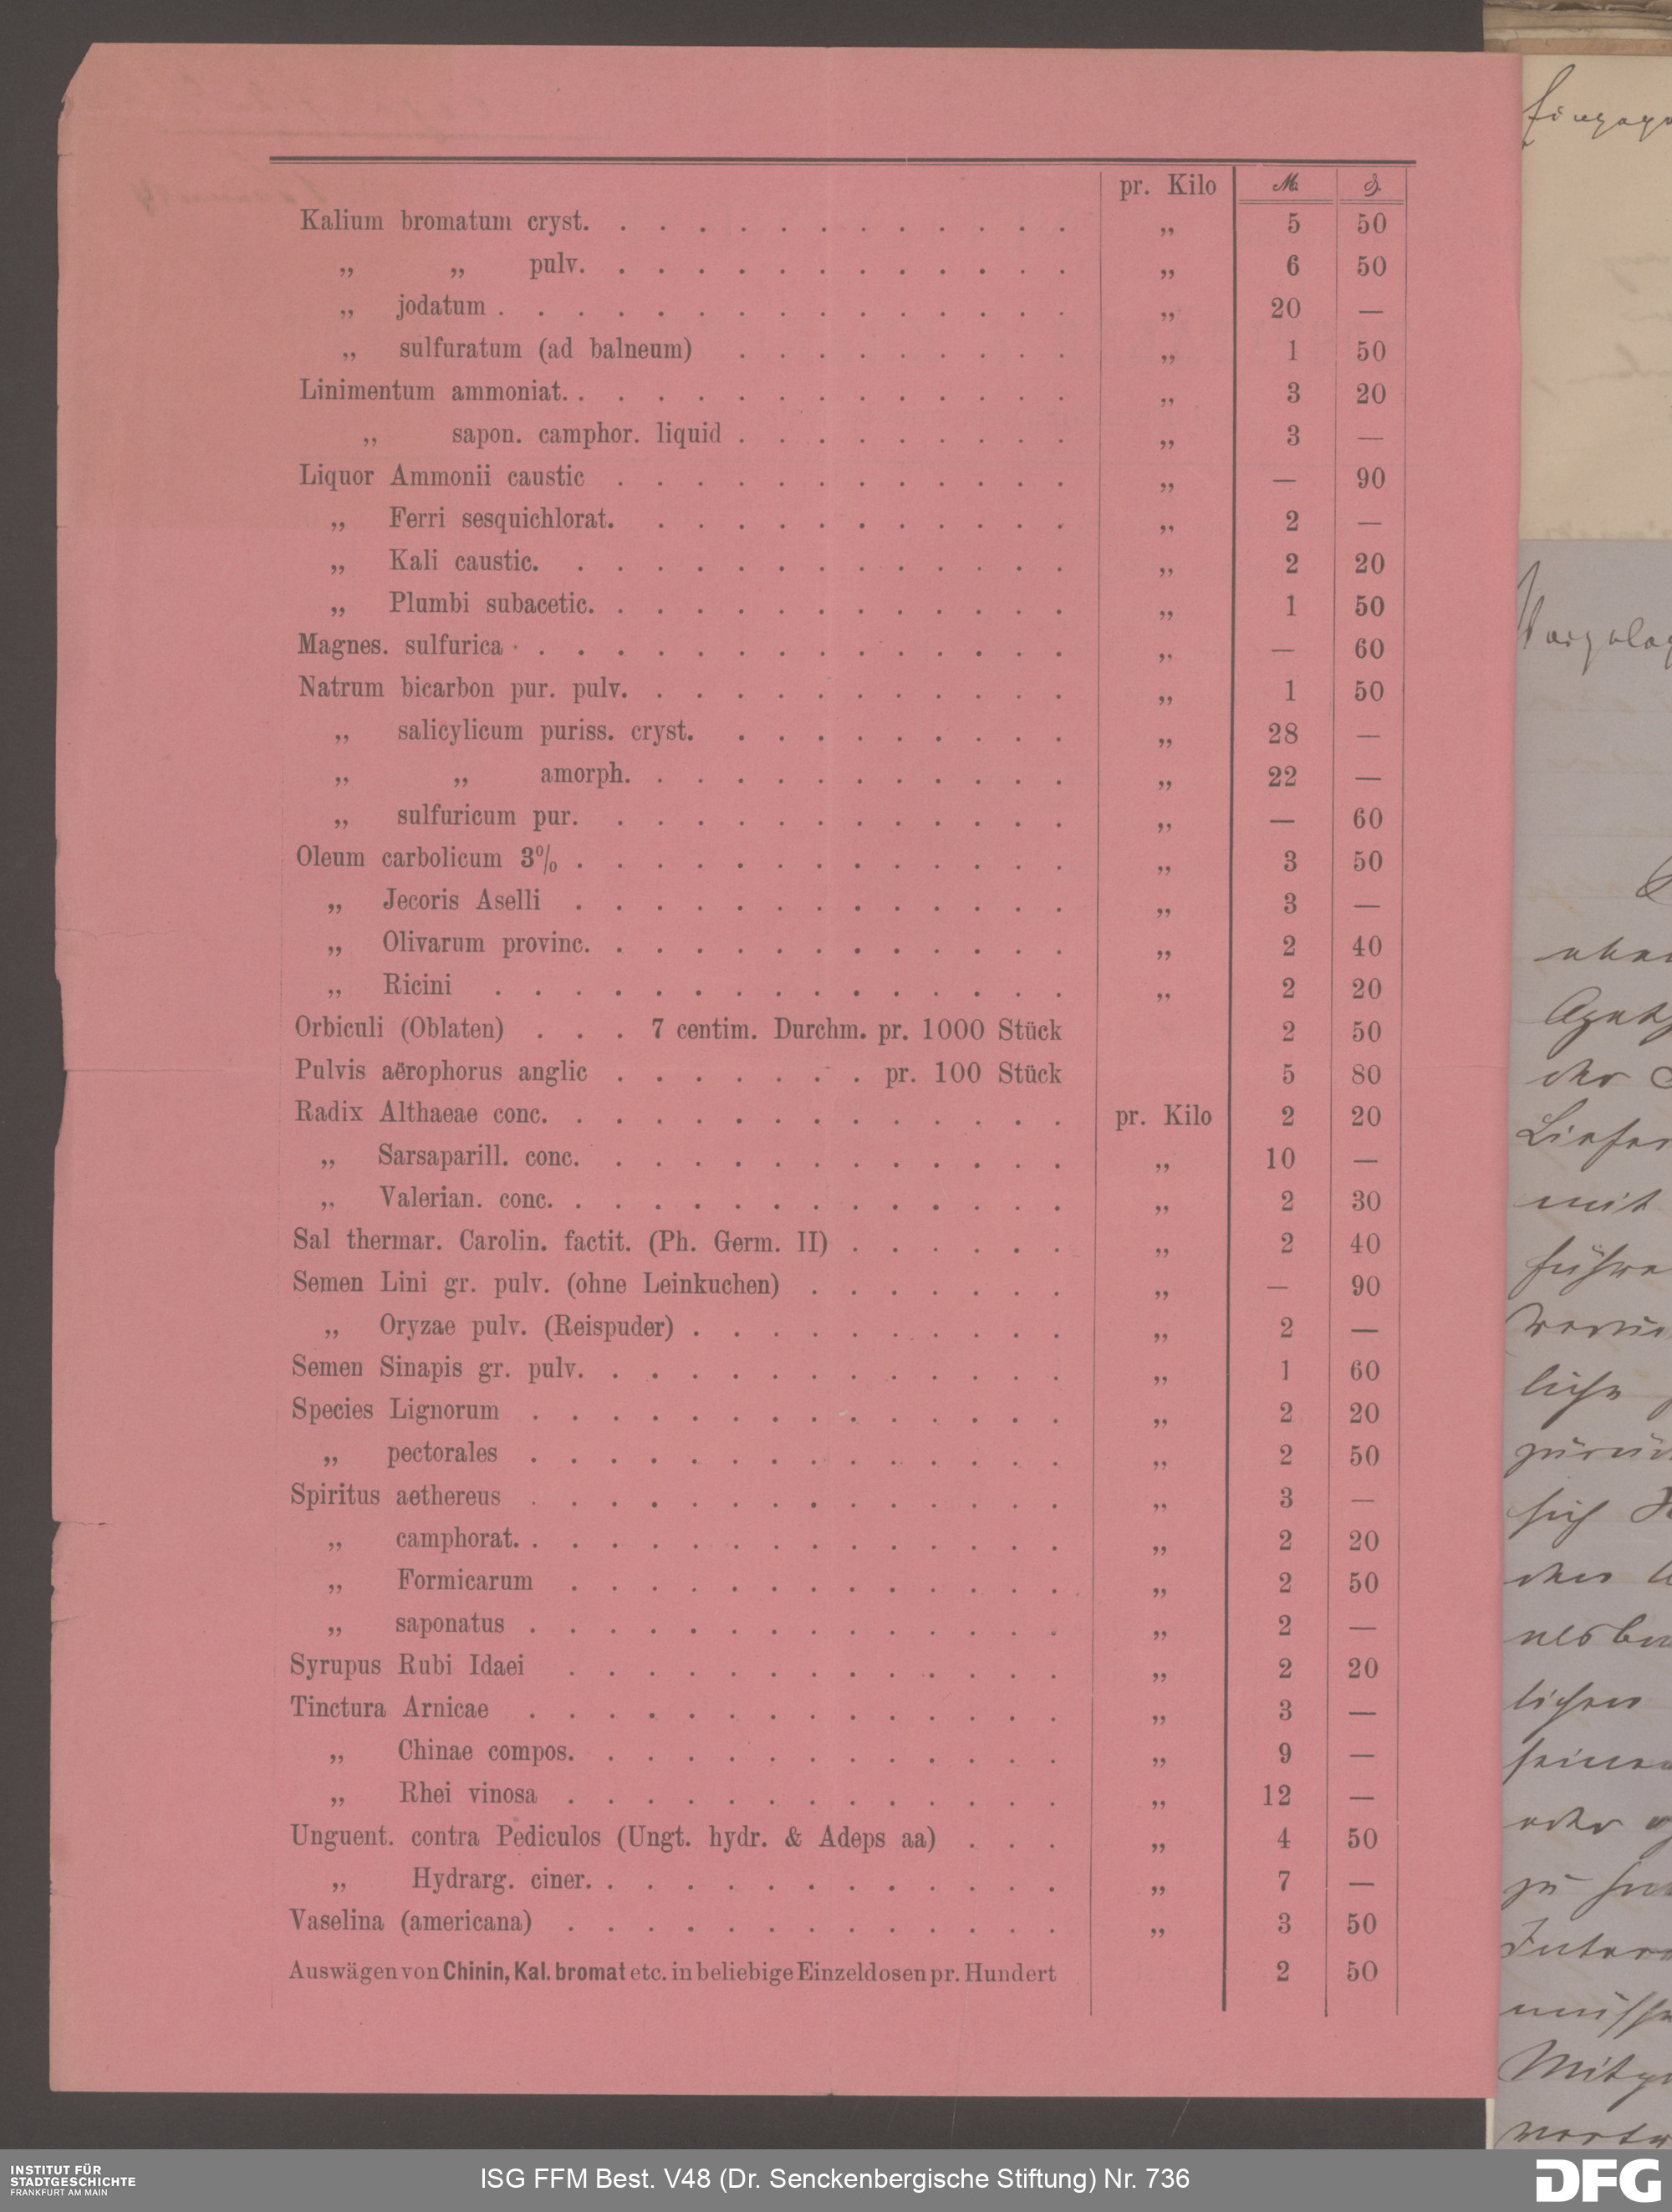 pr. Kilo M. ₰.
Kalium bromatum cryst. . . . . . . . . . . . . „ 5 50
„ „ pulv. . . . . . . . . . . . . „ 6 50
„ jodatum . . . . . . . . . . . . . . . „ 20 —
„ sulfuratum (ad balneum) . . . . . . . . . „ 1 50
Linimentum ammoniat. . . . . . . . . . . . . . „ 3 20
„ sapon. camphor. liquid . . . . . . . . . „ 3 —
Liquor Ammonii caustic . . . . . . . . . . . . „ — 90
„ Ferri sesquichlorat. . . . . . . . . . . . „ 2 —
„ Kali caustic. . . . . . . . . . . . . . „ 2 20
„ Plumbi subacetic. . . . . . . . . . . . . „ 1 50
Magnes. sulfurica . . . . . . . . . . . . . . . „ — 60
Natrum bicarbon pur. pulv. . . . . . . . . . . . „ 1 50
„ salicylicum puriss. cryst. . . . . . . . . . „ 28 —
„ „ amorph. . . . . . . . . . . . „ 22 —
„ sulfuricum pur. . . . . . . . . . . . . „ — 60
Oleum carbolicum 3% . . . . . . . . . . . . . „ 3 50
„ Jecoris Aselli . . . . . . . . . . . . . „ 3 —
„ Olivarum provinc. . . . . . . . . . . . . „ 2 40
„ Ricini . . . . . . . . . . . . . . . „ 2 20
Orbiculi (Oblaten) . . . 7 centim. Durchm. pr. 1000 Stück 2 50
Pulvis aërophorus anglic . . . . . . . pr. 100 Stück 5 80
Radix Althaeae conc. . . . . . . . . . . . . . pr. Kilo 2 20
„ Sarsaparill. conc. . . . . . . . . . . . . „ 10 —
„ Valerian. conc. . . . . . . . . . . . . . „ 2 30
Sal thermar. Carolin. factit. (Ph. Germ. II) . . . . . . „ 2 40
Semen Lini gr. pulv. (ohne Leinkuchen) . . . . . . . „ — 90
„ Oryzae pulv. (Reispuder) . . . . . . . . . . „ 2 —
Semen Sinapis gr. pulv. . . . . . . . . . . . . „ 1 60
Species Lignorum . . . . . . . . . . . . . . „ 2 20
„ pectorales . . . . . . . . . . . . . . „ 2 50
Spiritus aethereus . . . . . . . . . . . . . . „ 3 —
„ camphorat. . . . . . . . . . . . . . . „ 2 20
„ Formicarum . . . . . . . . . . . . . „ 2 50
„ saponatus . . . . . . . . . . . . . . „ 2 —
Syrupus Rubi Idaei . . . . . . . . . . . . . „ 2 20
Tinctura Arnicae . . . . . . . . . . . . . . „ 3 —
„ Chinae compos. . . . . . . . . . . . . „ 9 —
„ Rhei vinosa . . . . . . . . . . . . . „ 12 —
Unguent. contra Pediculos (Ungt. hydr. & Adeps aa) . . . „ 4 50
„ Hydrarg. ciner. . . . . . . . . . . . . „ 7 —
Vaselina (americana) . . . . . . . . . . . . . „ 3 50
Auswägen von Chinin, Kal. bromat etc. in beliebige Einzeldosen pr. Hundert 2 50
INSTITUT FÜR
STADTGESCHICHTE
FRANKFURT AM MAIN
ISG FFM Best. V48 (Dr. Senckenbergische Stiftung) Nr. 736
DFG